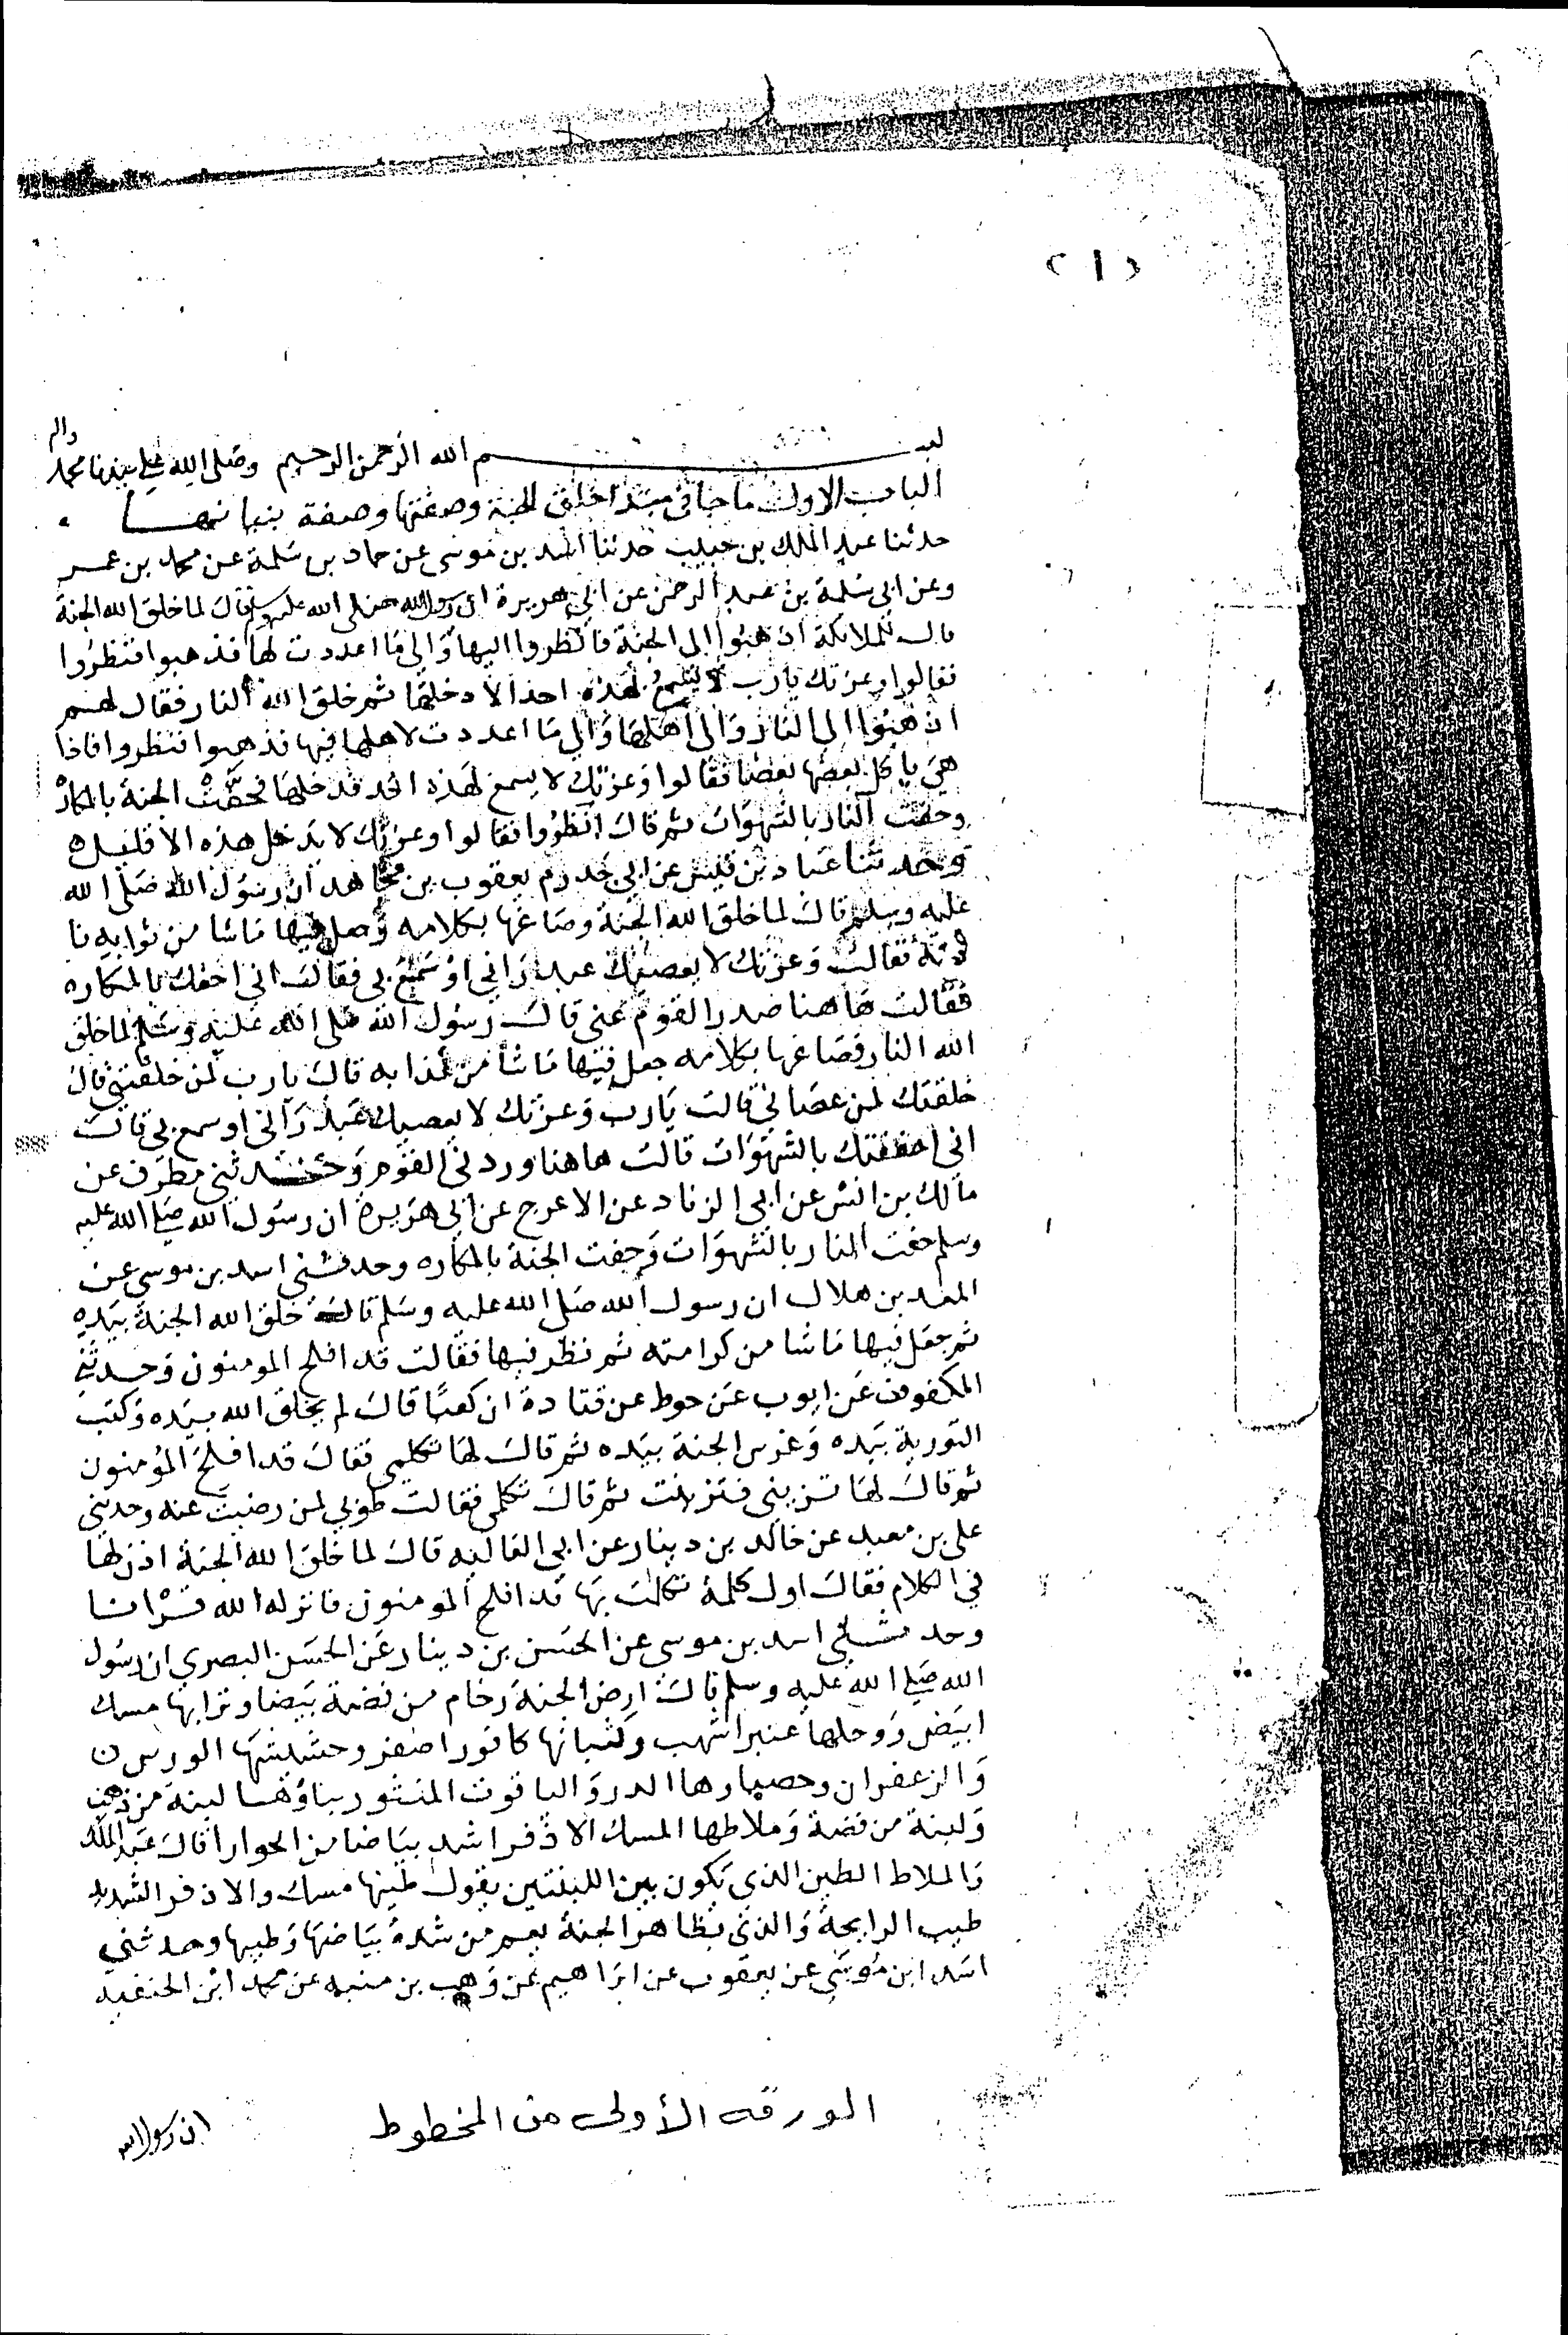 (١)
بسم الله الرحمن الرحيم وصلى الله على سيدنا محمد واله
الباب الاول ما جا في مبتدا خلق الجنة وصفتها وصفة بنيانها
حدثنا عبد الملك بن حبيب حدثنا اسد بن موسى عن حماد بن سلمة عن محمد بن عمر
وعن ابي سلمة بن عبد الرحمن عن ابي هريرة ان رسول الله صلى الله عليه وسلم قال لما خلق الله الجنة
قال للملائكة اذهبوا الى الجنة فانظروا اليها والى ما اعددت لها فذهبوا فنظروا
فقالوا وعزتك يا رب لا يسمع بهذه احد الا دخلها ثم خلق الله النار فقال لهم
اذهبوا الى النار والى اهلها والى ما اعددت لاهلها فيها فذهبوا فنظروا فاذا
هي ياكل بعضها بعضا فقالوا وعزتك لا يسمع لهذه احد فدخلها فحفت الجنة بالمكاره
وحفت النار بالشهوات ثم قال انظروا فقالوا وعزتك لا يدخل هذه الا قليل
وحدثنا عباد بن قيس عن ابي يعقوب بن مجاهد ان رسول الله صلى الله
عليه وسلم قال لما خلق الله الجنة وصاغها بكلامه وجعل فيها ما شا من ثوابه
فقالت وعزتك لا يعصيك عبد راني او سمع بي فقال اني احفك بالمكاره
فقالت هاهنا صدر القوم عني قال رسول الله صلى الله عليه وسلم لما خلق
الله النار فصاغها بكلامه جعل فيها ما شا من عذابه قالت يا رب لمن خلقتني قال
خلقتك لمن عصاني قالت يا رب وعزتك لا يعصيك عبد راني او سمع بي قال
اني احففتك بالشهوات قالت هاهنا ورد لي القوم وحدثني مطرف عن
مالك بن انس عن ابي الزناد عن الاعرج عن ابي هريرة ان رسول الله صلى الله عليه
وسلم حفت النار بالشهوات وحفت الجنة بالمكاره وحدثني اسد بن موسى عن
بن هلال ان رسول الله صلى الله عليه وسلم قال خلق الله الجنة بيده
ثم جعل فيها ما شا من كرامته ثم نظر فيها فقالت قد افلح المومنون وحدثني
المكفوف عن ايوب عن حوط عن قتادة ان كعبًا قال لم يخلق الله بيده وكتب
التورية بيده وغرس الجنة بيده ثم قال لها تكلمي فقال قد افلح المؤمنون
ثم قال لها تزيني فتزينت ثم قال تكلمي فقالت طوبى لمن رضيت عنه وحدثني
على بن معبد عن خالد بن دينار عن ابي العاليه قال لما خلق الله الجنة اذن لها
في الكلام فقال اول كلمة تكلمت بها قد افلح المومنون فانزله الله قرانا
وحدثني اسد بن موسى عن الحسن بن دينار عن الحسن البصري ان رسول
الله صلى الله عليه وسلم قال ارض الجنة رخام من فضة بيضا وترابها مسك
ابيض ووحلها عنبر اشهب وكثبانها كافور اصفر وحشيشها الورس
والزعفران وحصباوها الدر والياقوت المنثور بناؤها لبنة من ذهب
ولبنة من فضة وملاطها المسك الاذفر اشد بياضا من الحوارا قال عبد الملك
والملاط الطين الذي يكون بين اللبنتين يقول طينها مسك والاذفر الشديد
طيب الرايحة والذي بظاهر الجنة يعم من شدة بياضها وطيبها وحدثني
اسد ابن موسى عن يعقوب عن ابراهيم عن وهب بن منبه عن محمد ابن الحنفيه
ان رسول الله
الورقه الأولى من المخطوط